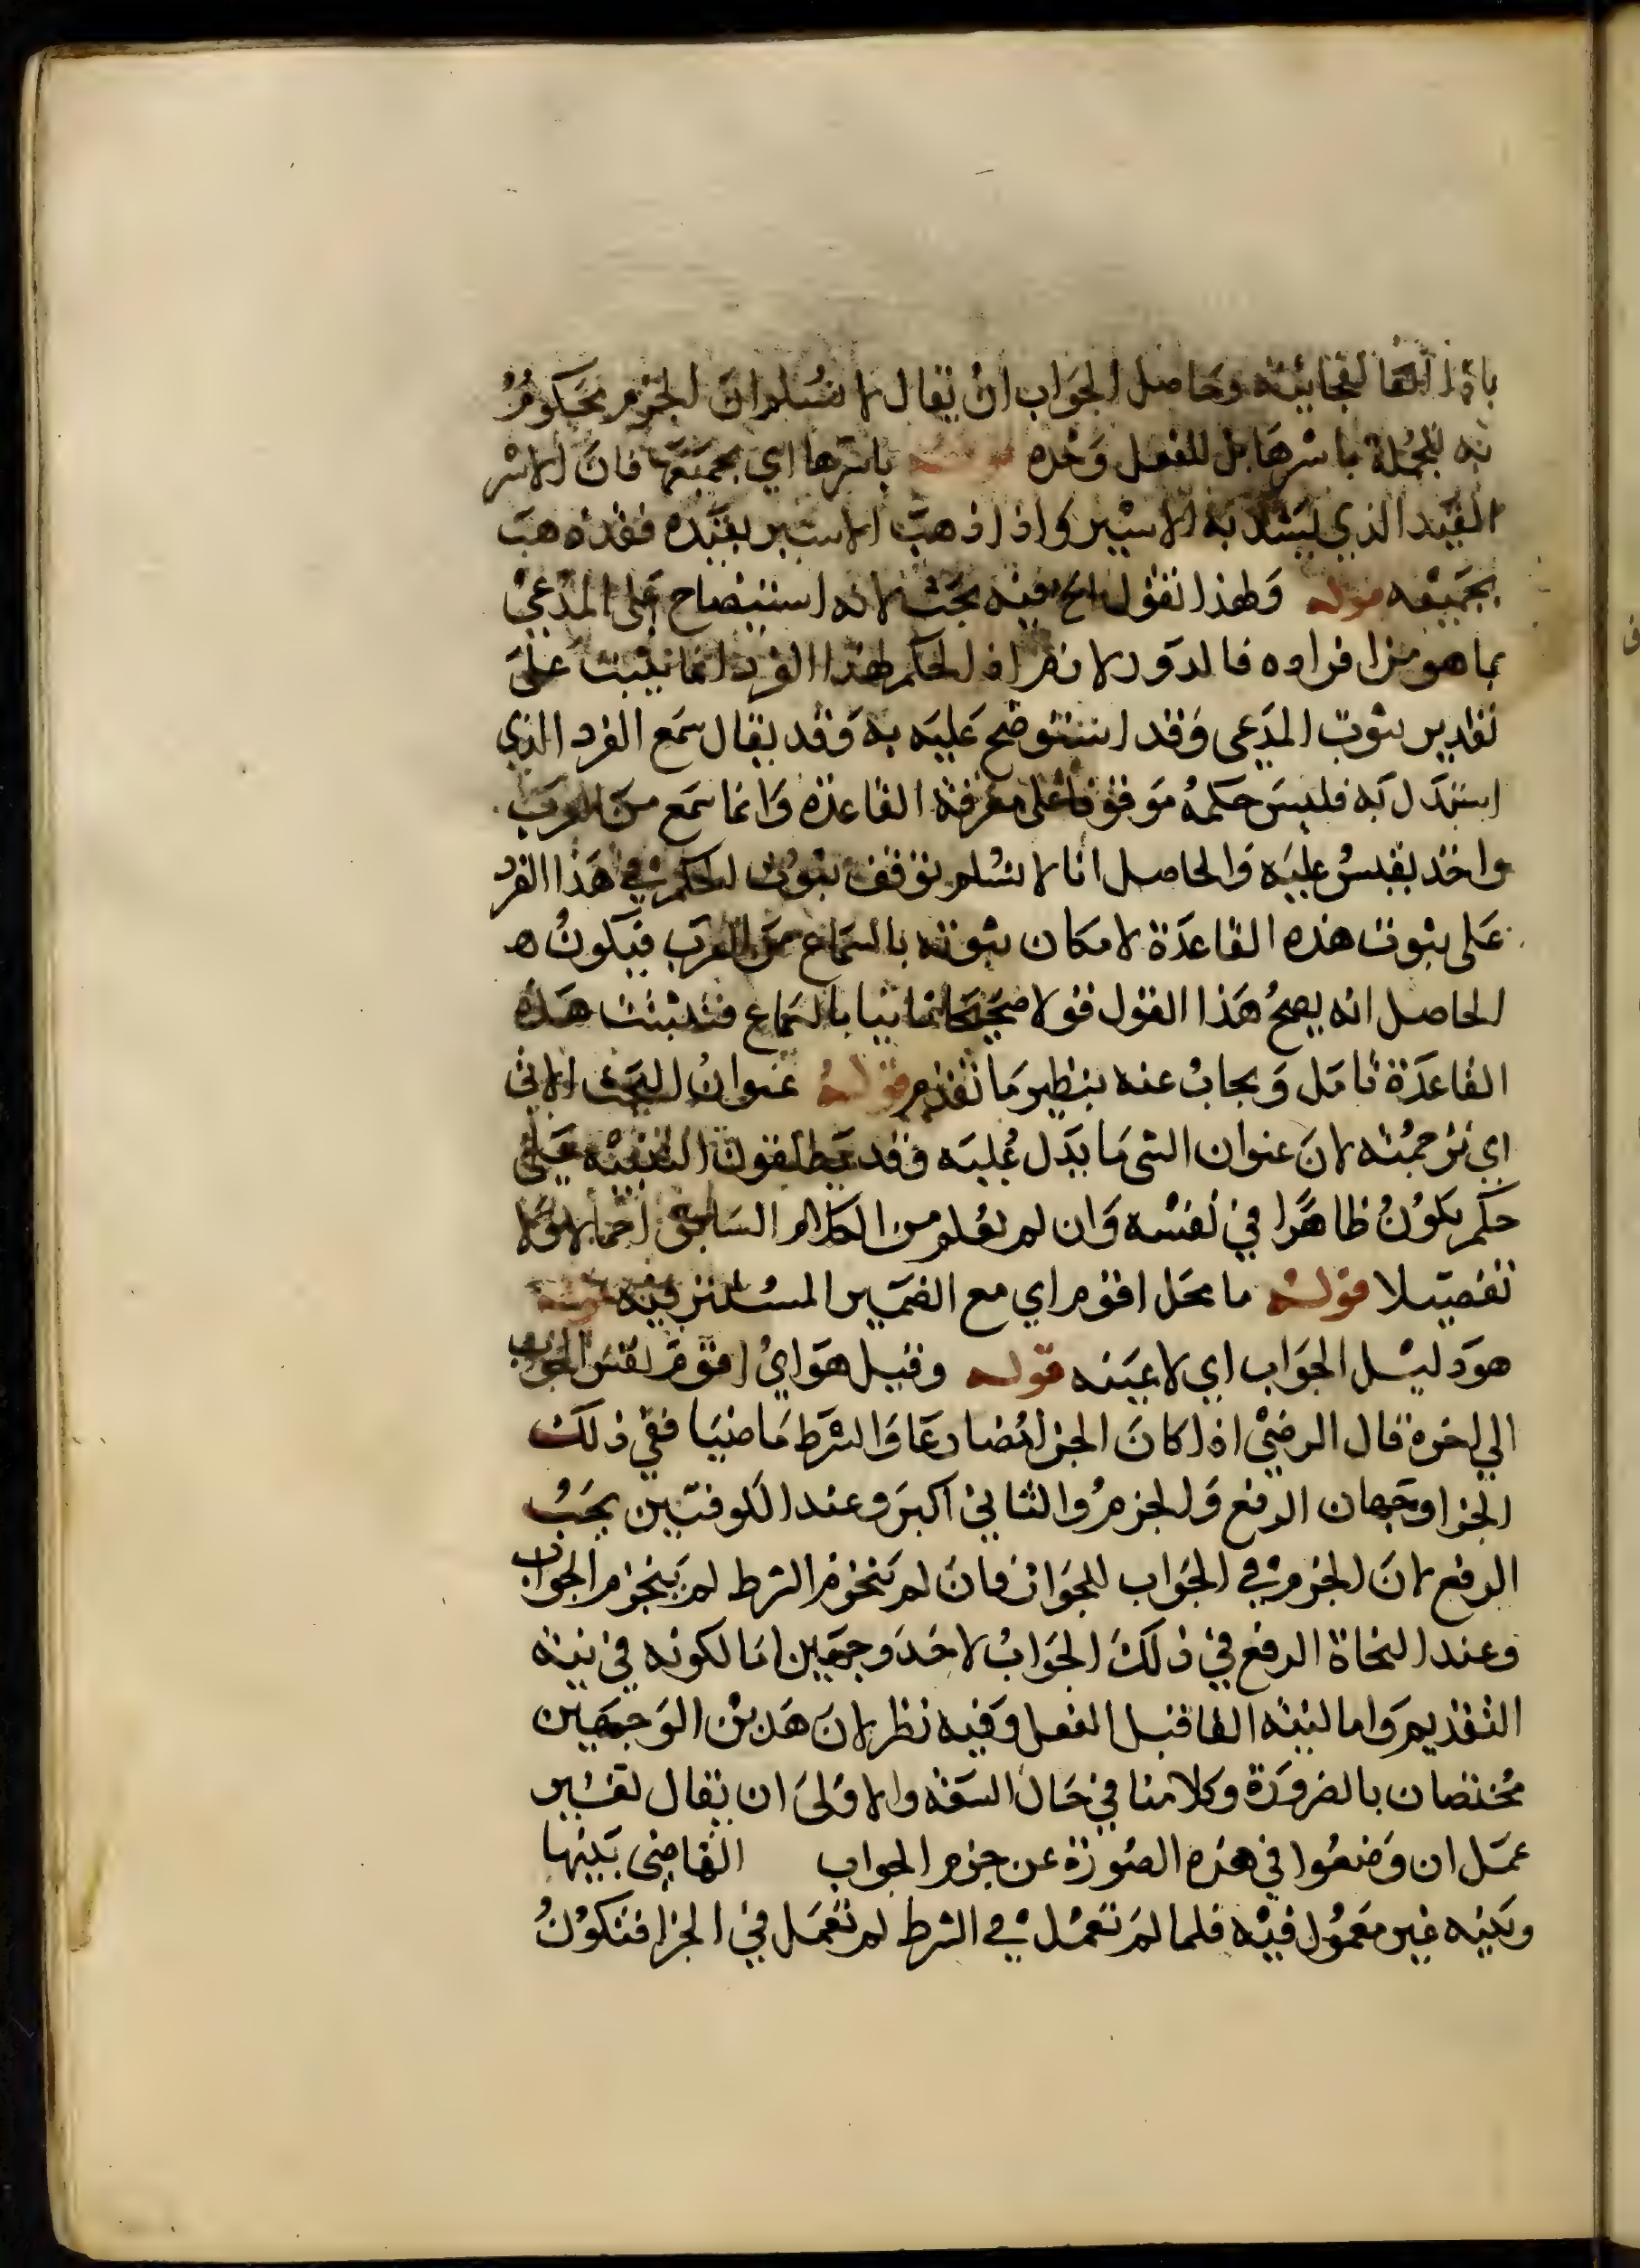 باذا الفجائية وحاصل الجواب ان يقال لا نسلم ان الجزم محكوم
به للجملة باسرها بل للفعل وحده قوله باسرها اي بجميعها فان الاسر
القيد الذي يشد به الاسير واذا ذهب الاسير بقيده فقد ذهب
بجميعه قوله ولهذا نقول الخ فيه بحث لانه استيضاح على المدعي
بما هو من افراده فالدور لازم اذ الحكم لهذا الفرد انما يثبت على
تقدير ثبوت المدعى وقد استوضح عليه به وقد يقال سمع الفرد الذي
استدل به فليس حكمه موقوفا على معرفة القاعدة وانما سمع من العرب
واخذ يقيس عليه والحاصل انا لا نسلم توقف ثبوت الحكم في هذا الفرد
على ثبوت هذه القاعدة لامكان ثبوته بالسماع من العرب فيكون ه
الحاصل انه يصح هذا القول قولا صحيحا ثابتا بالسماع فتثبت هذه
القاعدة تامل ويجاب عنه بنظير ما تقدم قوله عنوان البحث الاتي
اي ترجمته لان عنوان الشي ما يدل عليه وقد يطلقون التنبيه على
حكم يكون ظاهرا في نفسه وان لم يعلم من الكلام السابق اجمالا ولا
تفصيلا قوله ما محل اقوم اي مع الضمير المستتر فيه قوله
هو دليل الجواب اي لا عينه قوله وقيل هو اي اقوم نفس الجواب
الي اخره قال الرضي اذا كان الجزا مضارعا والشرط ماضيا ففي ذلك
الجزا وجهان الرفع والجزم والثاني اكبر وعند الكوفيين يجب
الرفع لان الجزم في الجواب للجوار فان لم ينجزم الشرط لم ينجزم الجواب
وعند النحاة الرفع في ذلك الجواب لاحد وجهين اما لكونه في نية
التقديم واما لنية الفا قبل الفعل وفيه نظر لان هذين الوجهين
مختصان بالضرورة وكلامنا في حال السعة والاولى ان يقال لتغيير
عمل ان وضعوا في هذه الصورة عن جزم الجواب القاضي بينها
وبينه غير معمول فيه فلما لم تعمل في الشرط لم تعمل في الجزا فتكون